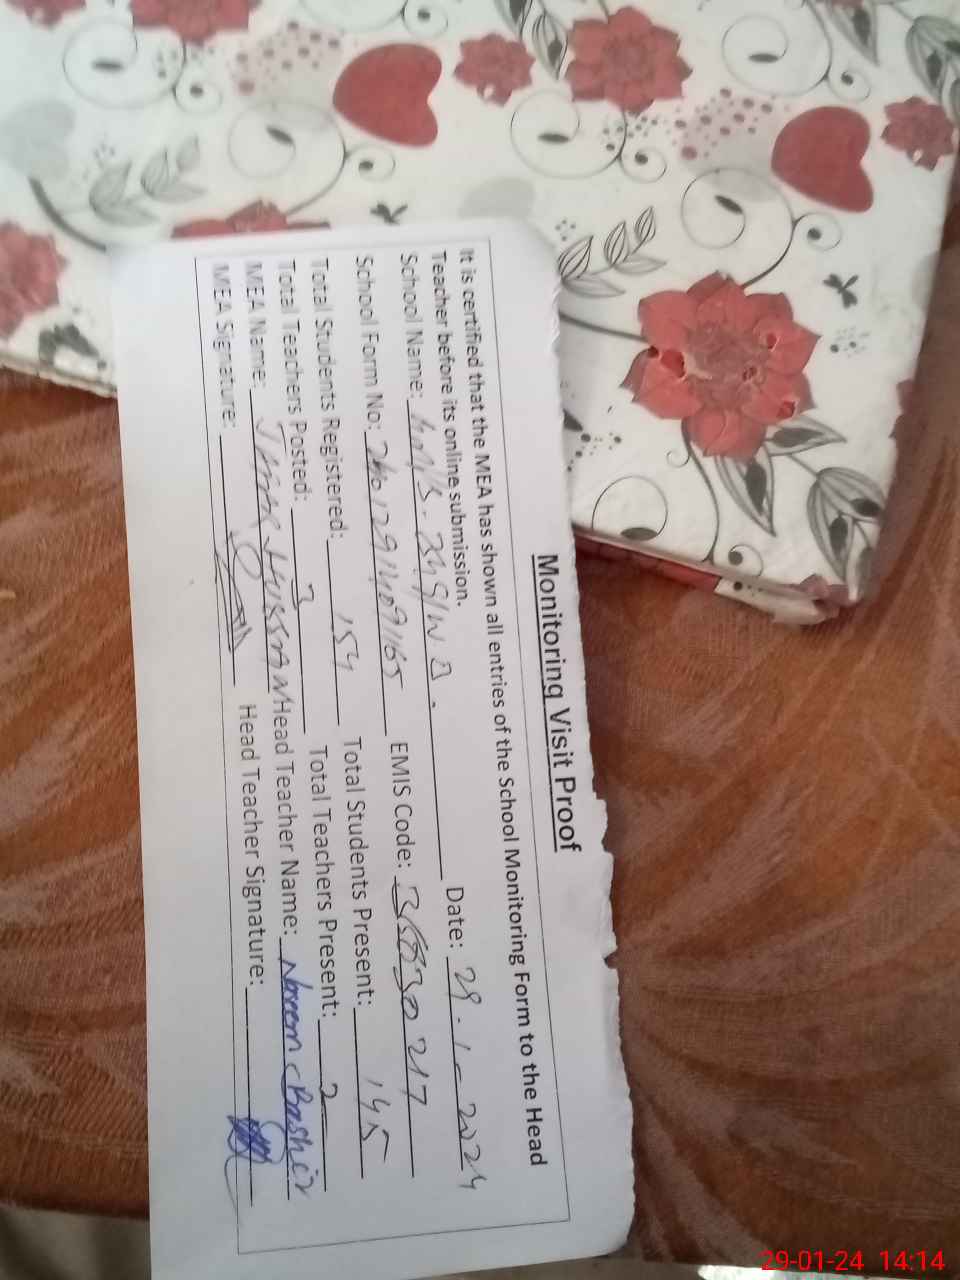 Monitoring Visit Proof
It is certified that the MEA has shown all entries of the School Monitoring Form to the Head
Teacher before its online submission.
School Name: 249/W.B. Date: 29-1-2024
School Form No: EMIS Code: 217
Total Students Registered: 154 Total Students Present: 145
Total Teachers Posted: 3 Total Teachers Present: 2
MEA Name: Hussain Head Teacher Name: Noreem Bashir
MEA Signature: Head Teacher Signature:
29-01-24 14:14